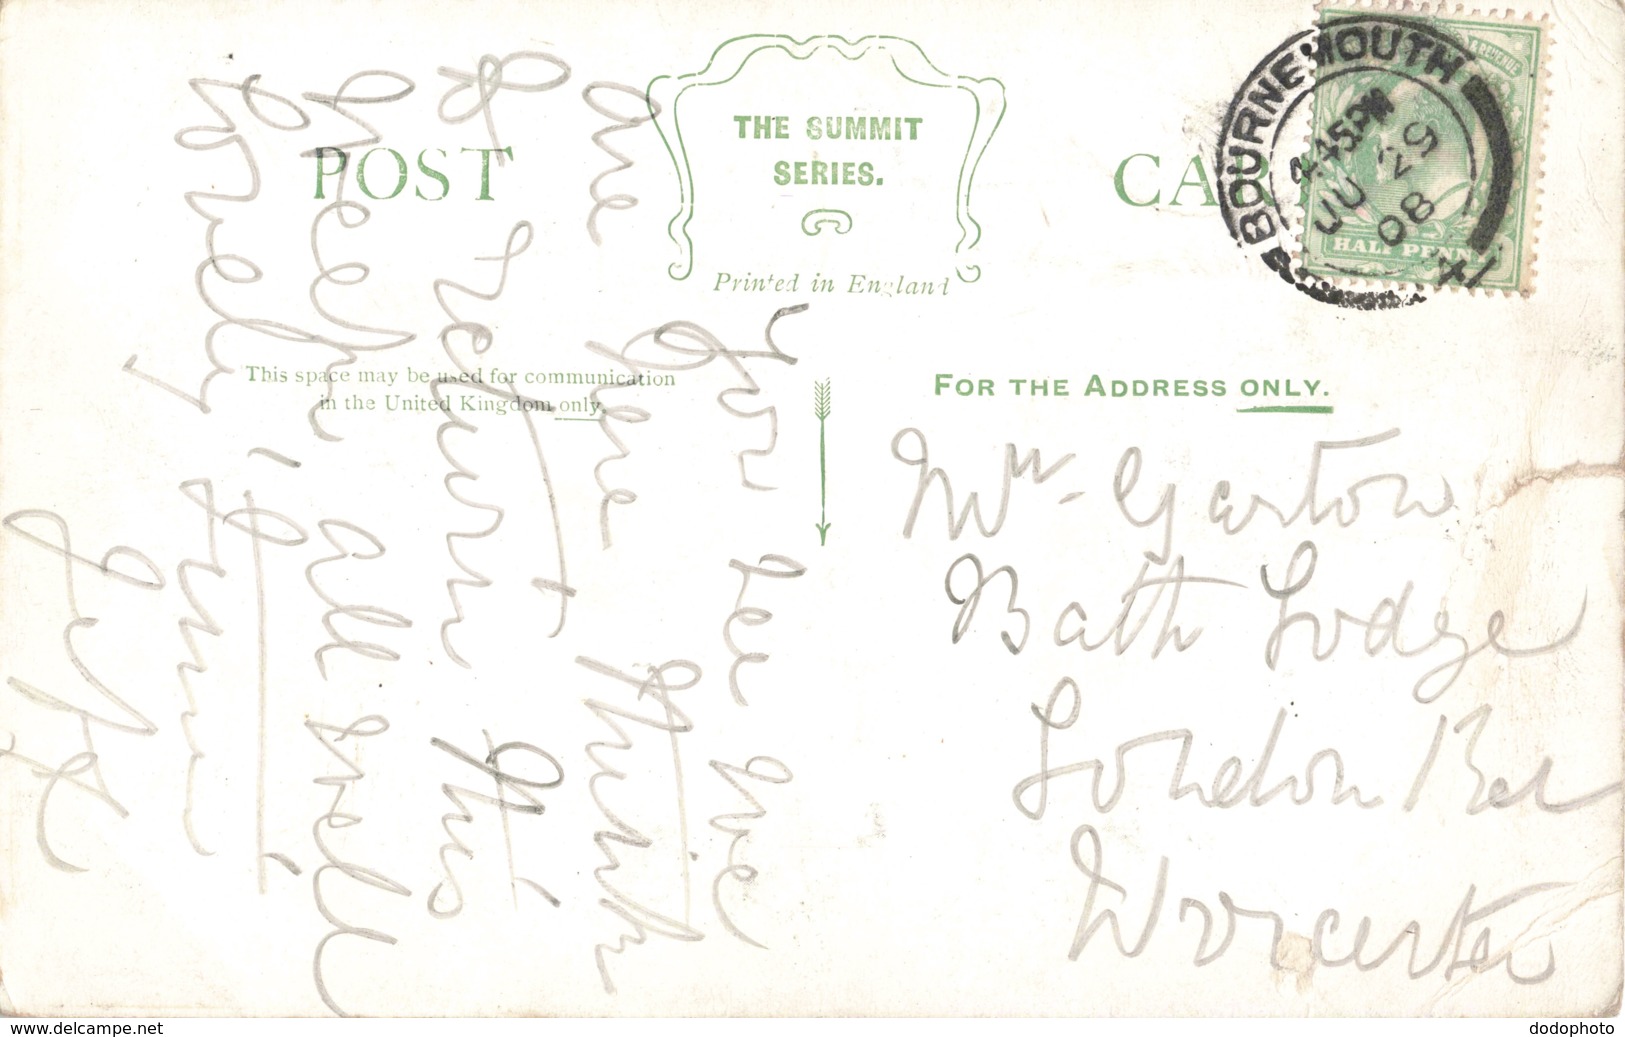 POST CARD
THE SUMMIT
SERIES.
Printed in England
This space may be used for communication
in the United Kingdom only.
FOR THE ADDRESS ONLY.
BOURNEMOUTH
4.45 PM
JU 25
08
HALF PENNY
Mrs. Garton
Bath Lodge
London Rd
Worcester
You see we
are here think
to return this
week all well
lovely time
www.delcampe.net
dodophoto